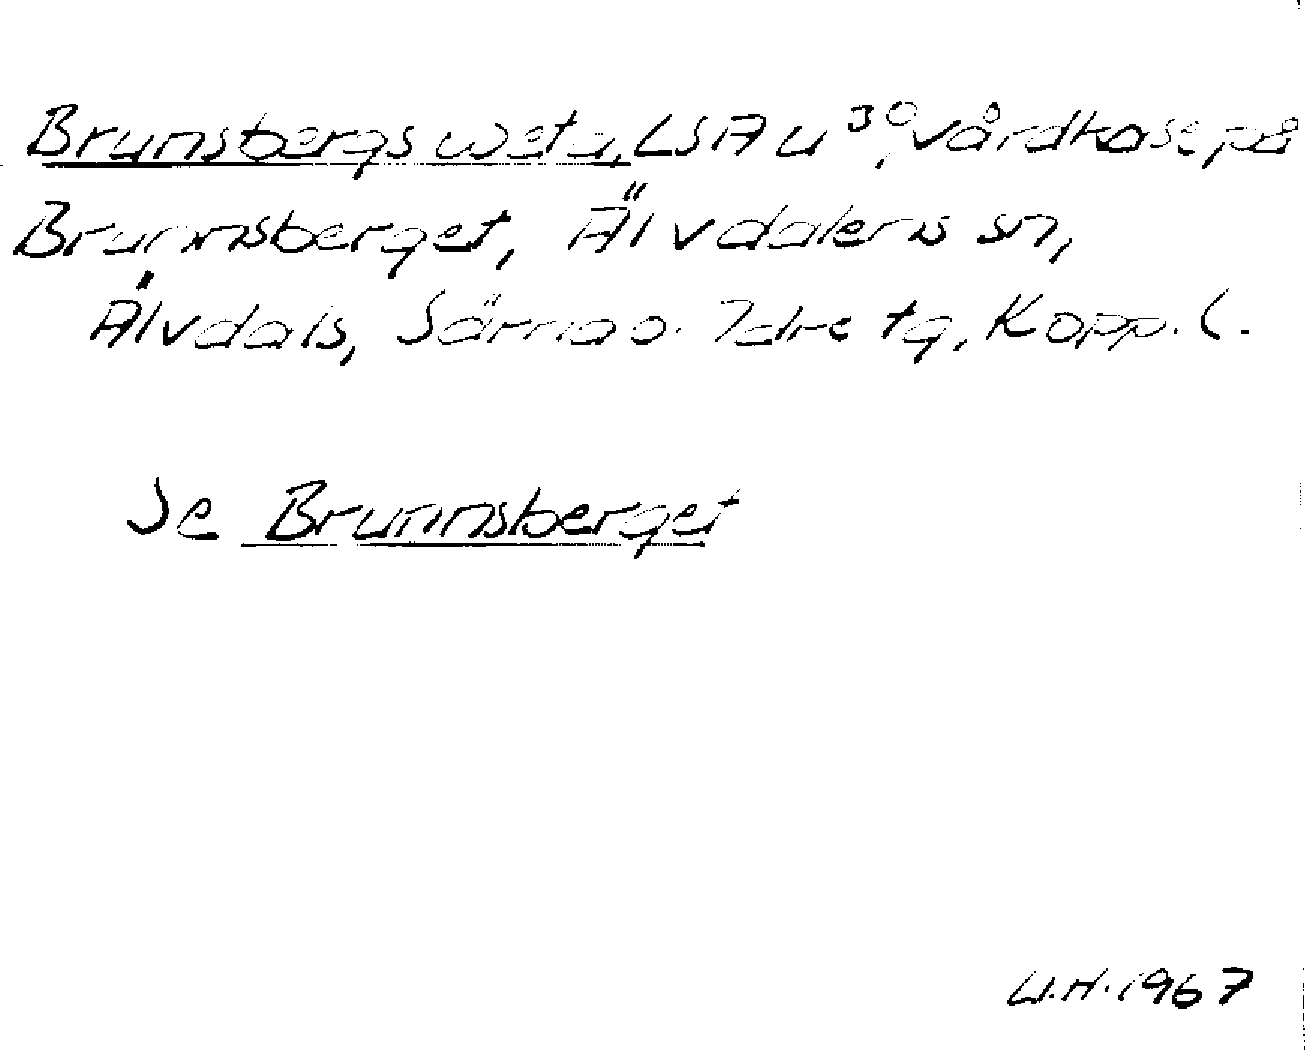 Brunsbergs weta, LSA U 30, vårdkase på
Brunnsberget, Älvdalens sn,
Älvdals, Särna o. Idre tg, Kopp. l.
Se Brunnsberget
U.H. 1967